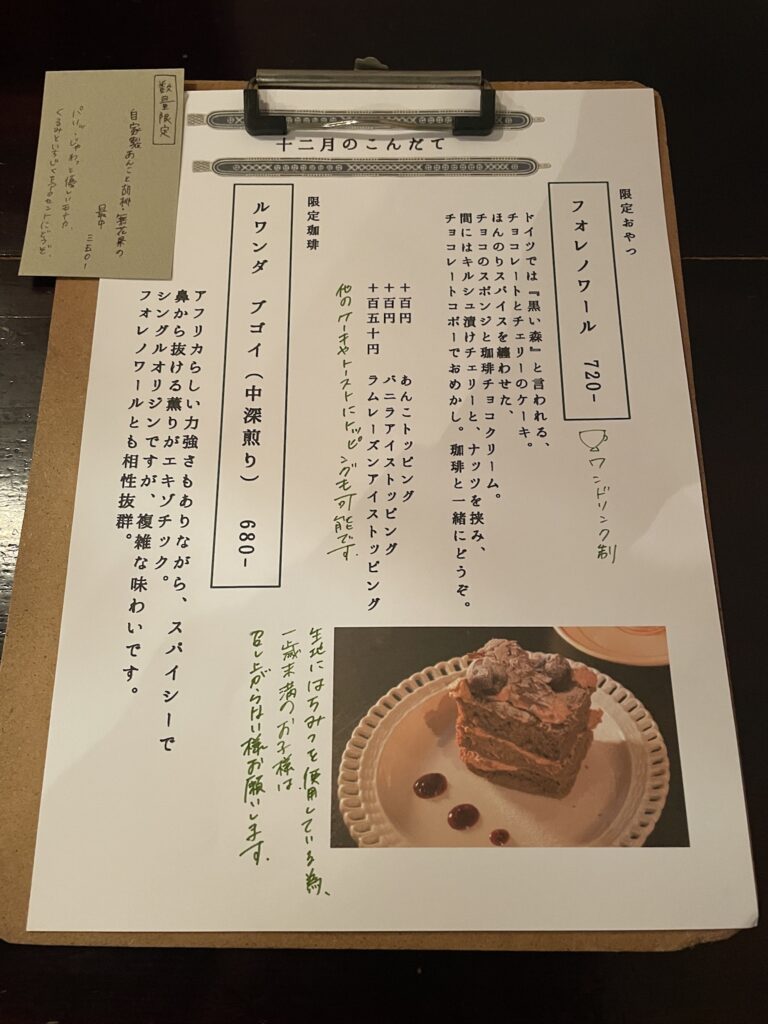 十二月のこんだて
限定おやつ
フォレノワール 720-
ワンドリンク制
ドイツでは『黒い森』と言われる、
チョコレートとチェリーのケーキ。
ほんのりスパイスを纏わせた、
チョコのスポンジと珈琲チョコクリーム。
間にはキルシュ漬けチェリーと、ナッツを挟み、
チョコレートコポーでおめかし。珈琲と一緒にどうぞ。
＋百円 あんこトッピング
＋百円 バニラアイストッピング
＋百五十円 ラムレーズンアイストッピング
他のケーキやトーストにトッピングも可能です。
限定珈琲
ルワンダ ブゴイ（中深煎り） 680-
アフリカらしい力強さもありながら、スパイシーで
鼻から抜ける薫りがエキゾチック。
シングルオリジンですが、複雑な味わいです。
フォレノワールとも相性抜群。
生地にはちみつを使用している為、
一歳未満のお子様は
召し上がらない様お願いします。
数量限定
自家製あんこと胡桃・無花果の
最中 三五〇-
パリッ、じゅわっと優しいモナカ。
くるみといちじくをアクセントにどうぞ